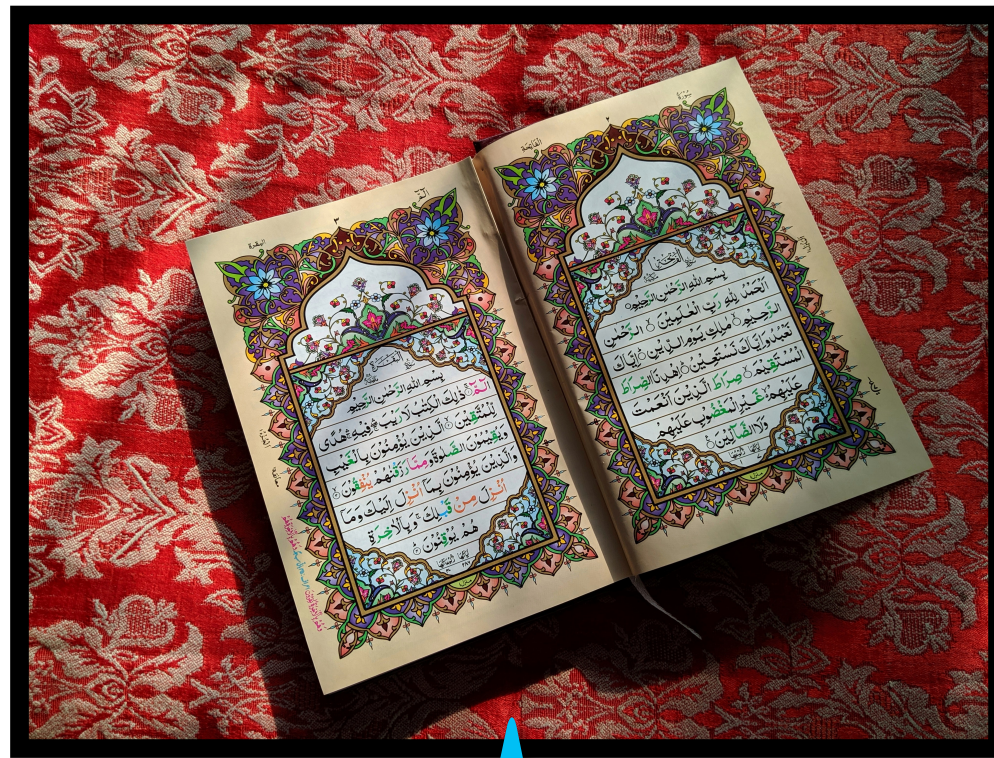 سورة
٢
الفاتحة
بِسْمِ اللهِ الرَّحْمٰنِ الرَّحِيْمِ
اَلْحَمْدُ لِلّٰهِ رَبِّ الْعٰلَمِيْنَ ۙ الرَّحْمٰنِ
الرَّحِيْمِ ۙ مٰلِكِ يَوْمِ الدِّيْنِ ۗ اِيَّاكَ
نَعْبُدُ وَاِيَّاكَ نَسْتَعِيْنُ ۗ اِهْدِنَا الصِّرَاطَ
الْمُسْتَقِيْمَ ۙ صِرَاطَ الَّذِيْنَ اَنْعَمْتَ
عَلَيْهِمْ ۙ غَيْرِ الْمَغْضُوْبِ عَلَيْهِمْ
وَلَا الضَّآلِّيْنَ
الٓمّٓ
٣
البقرة
بِسْمِ اللهِ الرَّحْمٰنِ الرَّحِيْمِ
الٓمّٓ ۚ ذٰلِكَ الْكِتٰبُ لَا رَيْبَ ۛ فِيْهِ ۛ هُدًى
لِّلْمُتَّقِيْنَ ۙ الَّذِيْنَ يُؤْمِنُوْنَ بِالْغَيْبِ
وَيُقِيْمُوْنَ الصَّلٰوةَ وَمِمَّا رَزَقْنٰهُمْ يُنْفِقُوْنَ ۙ
وَالَّذِيْنَ يُؤْمِنُوْنَ بِمَآ اُنْزِلَ اِلَيْكَ وَمَآ
اُنْزِلَ مِنْ قَبْلِكَ ۚ وَبِالْاٰخِرَةِ
هُمْ يُوْقِنُوْنَ ۗ